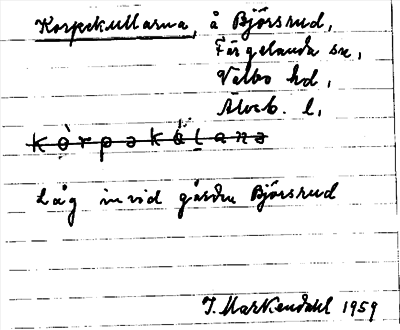 Korpekullarna, å Björsrud,
Färgelanda sn,
Valbo hd,
Älvsb. l,
kòrpəkèlanə
Låg invid gården Björsrud
J. Markendahl 1959